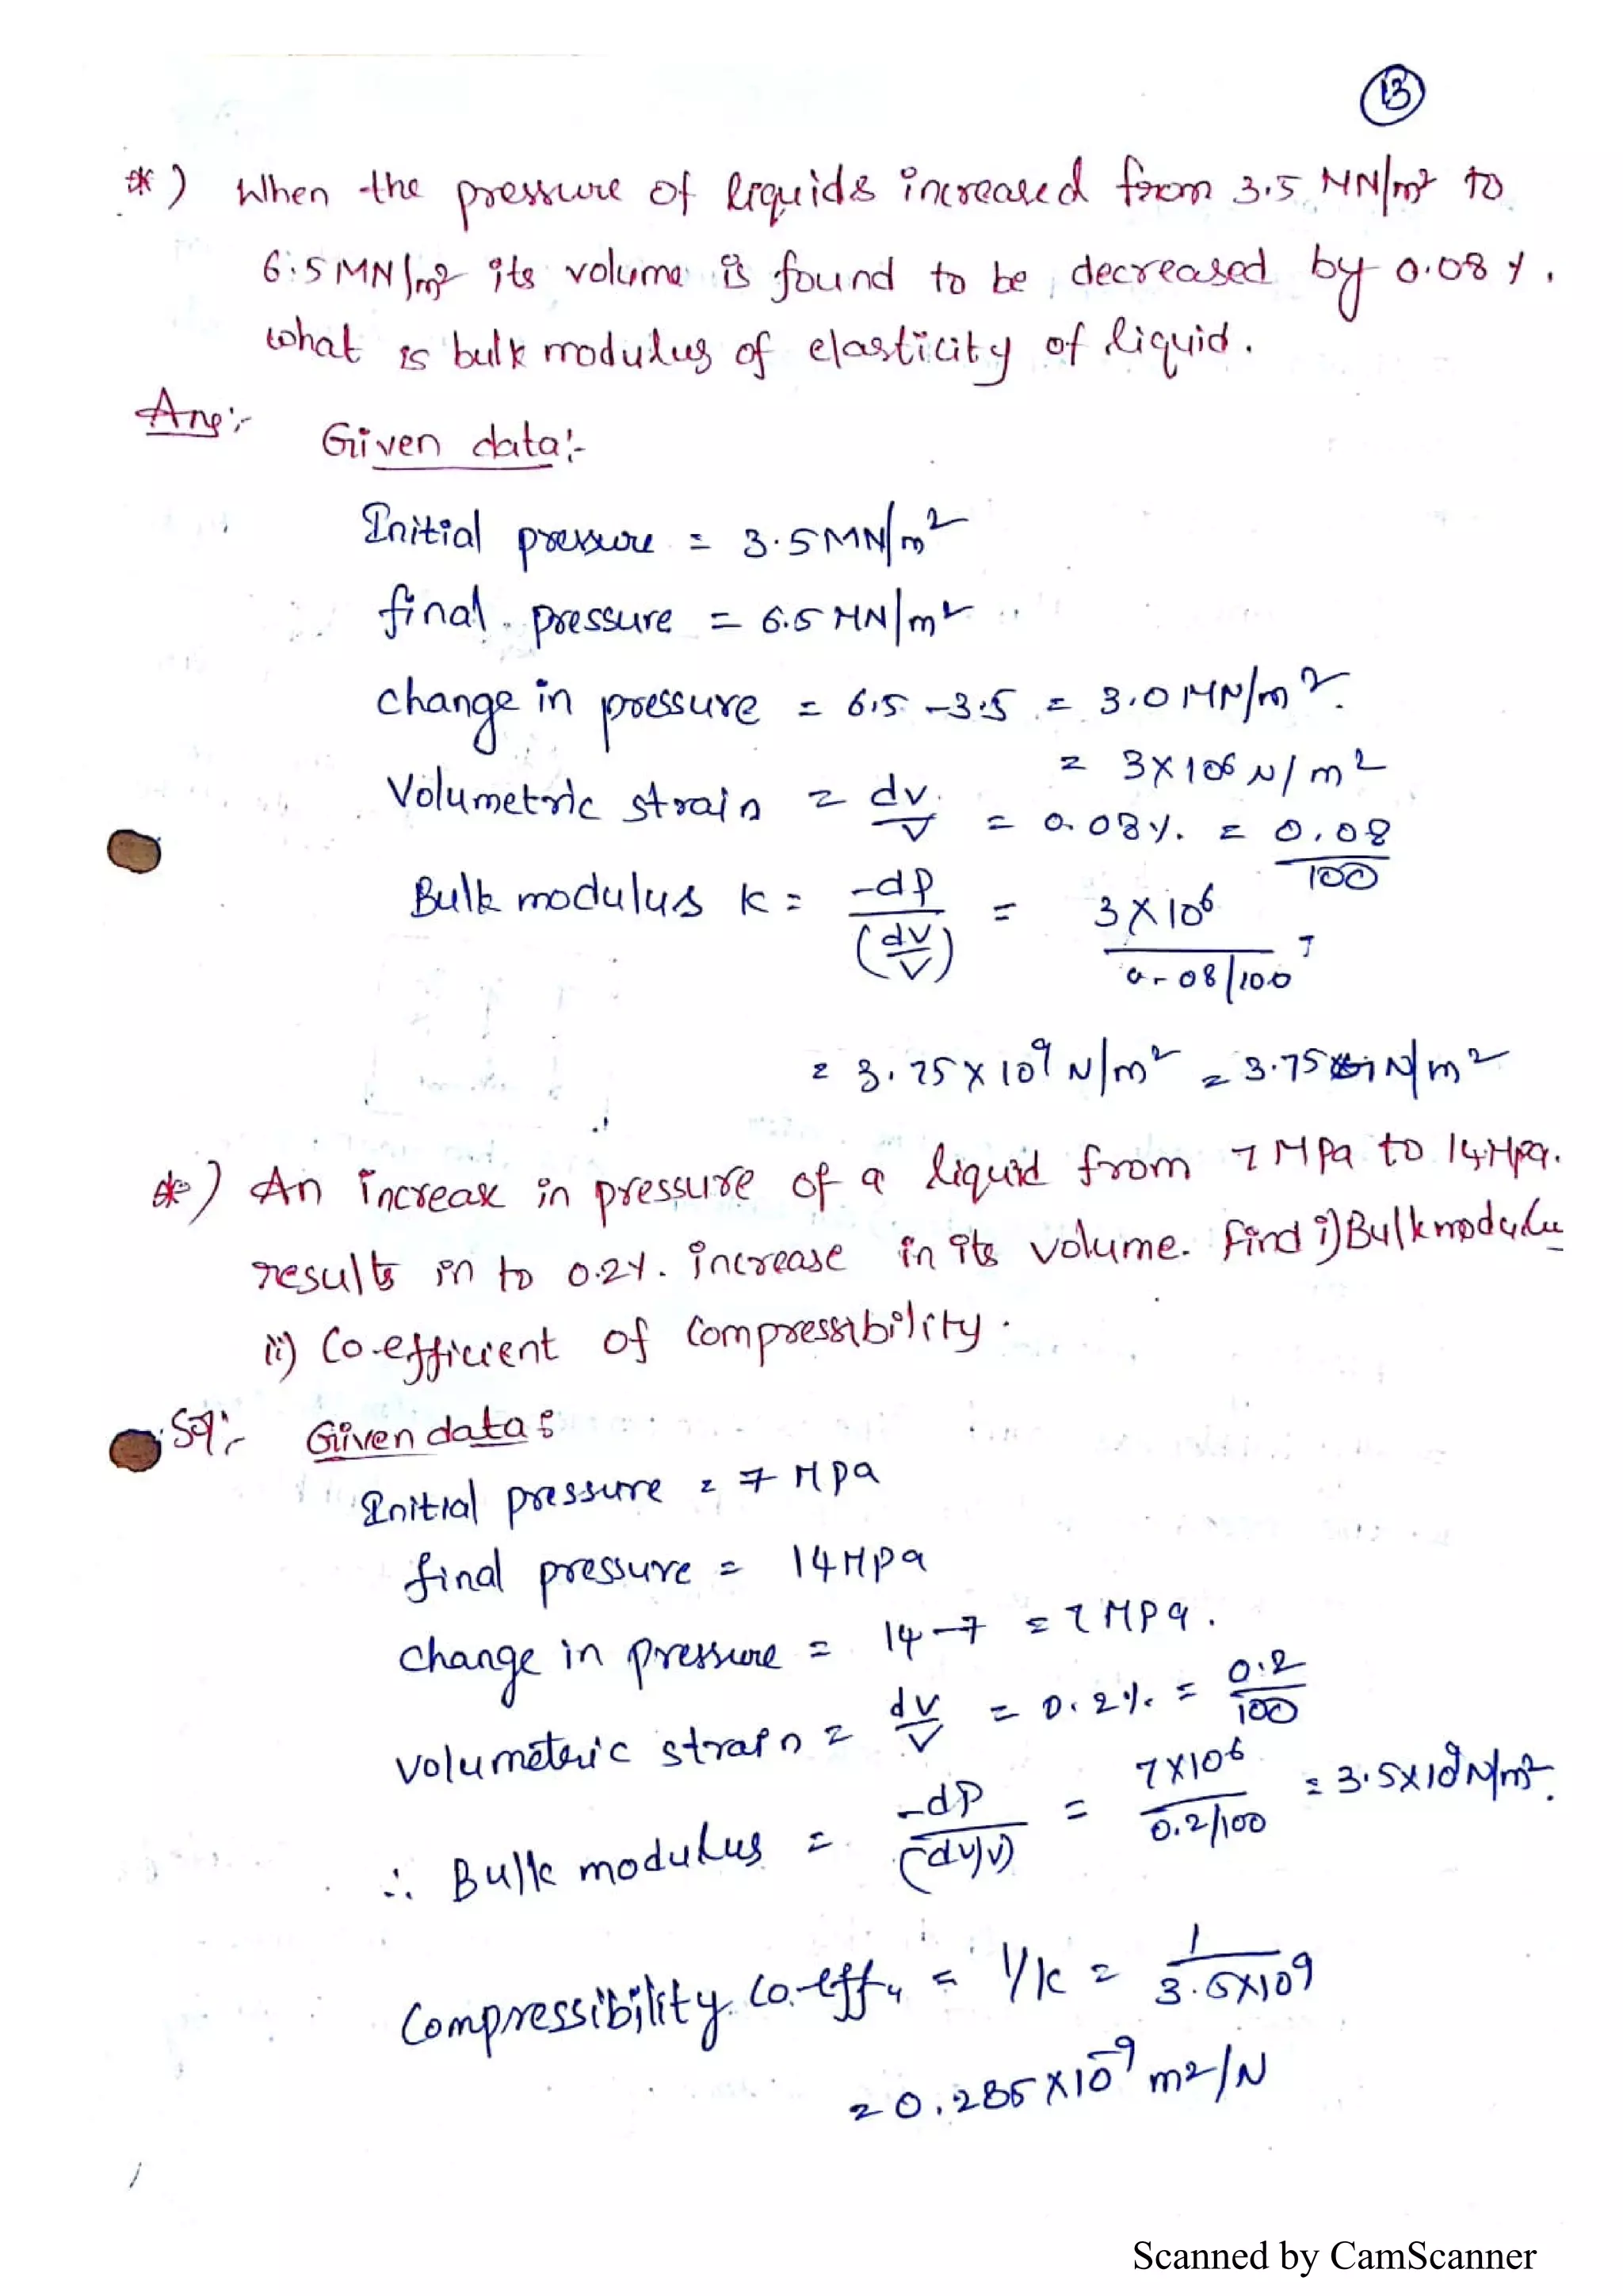 13
*) When the pressure of liquids increased from 3.5 MN/m² to
6.5 MN/m² its volume is found to be decreased by 0.08 %.
What is bulk modulus of elasticity of liquid.
Ans:-
Given data:-
Initial pressure = 3.5 MN/m²
final pressure = 6.5 MN/m²
change in pressure = 6.5 - 3.5 = 3.0 MN/m².
= 3×10⁶ N/m²
Volumetric strain = dv/V = 0.08%. = 0.08/100
Bulk modulus K = -dP/(dV/V) = 3×10⁶/0.08/100
= 3.75×10⁹ N/m² = 3.75 GN/m²
*) An increase in pressure of a liquid from 7 MPa to 14 MPa.
results in to 0.2%. increase in its volume. Find i) Bulk modulu
ii) Co-efficient of Compressibility.
Sol:- Given data:
Initial pressure = 7 MPa
final pressure = 14 MPa
change in pressure = 14-7 = 7 MPa.
volumetric strain = dv/V = 0.2%. = 0.2/100
∴ Bulk modulus = -dP/(dv/v) = 7×10⁶/0.2/100 = 3.5×10⁹ N/m².
Compressibility co-eff = 1/K = 1/3.5×10⁹
= 0.285×10⁻⁹ m²/N
Scanned by CamScanner